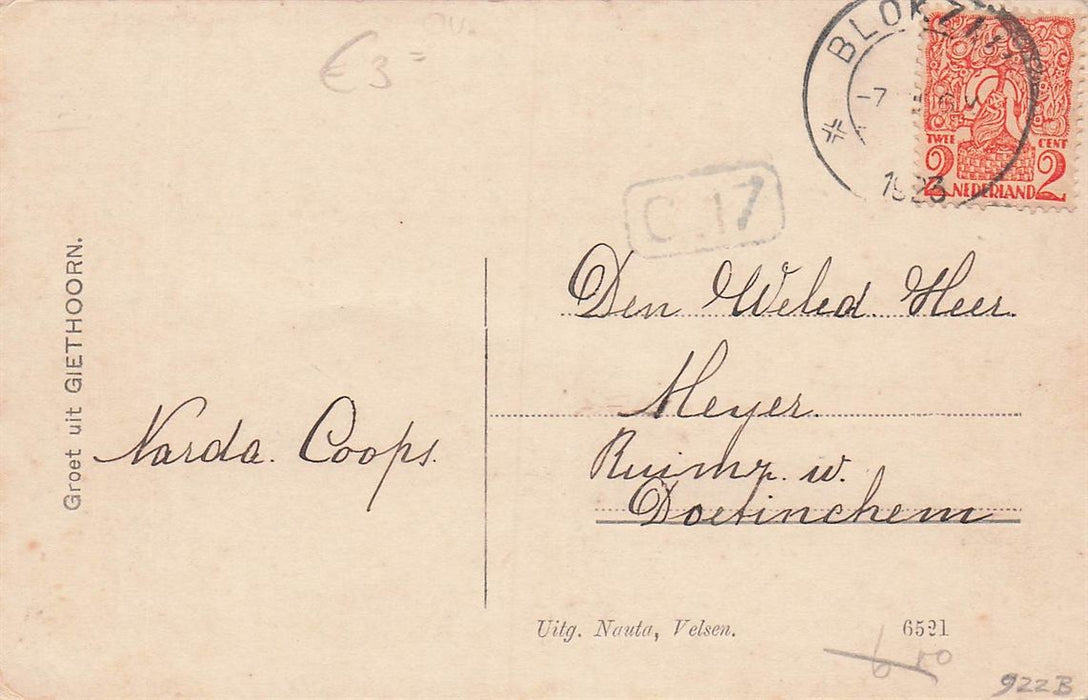 € 3 =
BLOKZIJL
-7
1923
TWEE CENT
2 NEDERLAND 2
C 17
Groet uit GIETHOORN.
Narda. Coops.
Den Weled. Heer.
Meyer.
Ruimz. w.
Doetinchem
Uitg. Nauta, Velsen.
6521
6 50
922B